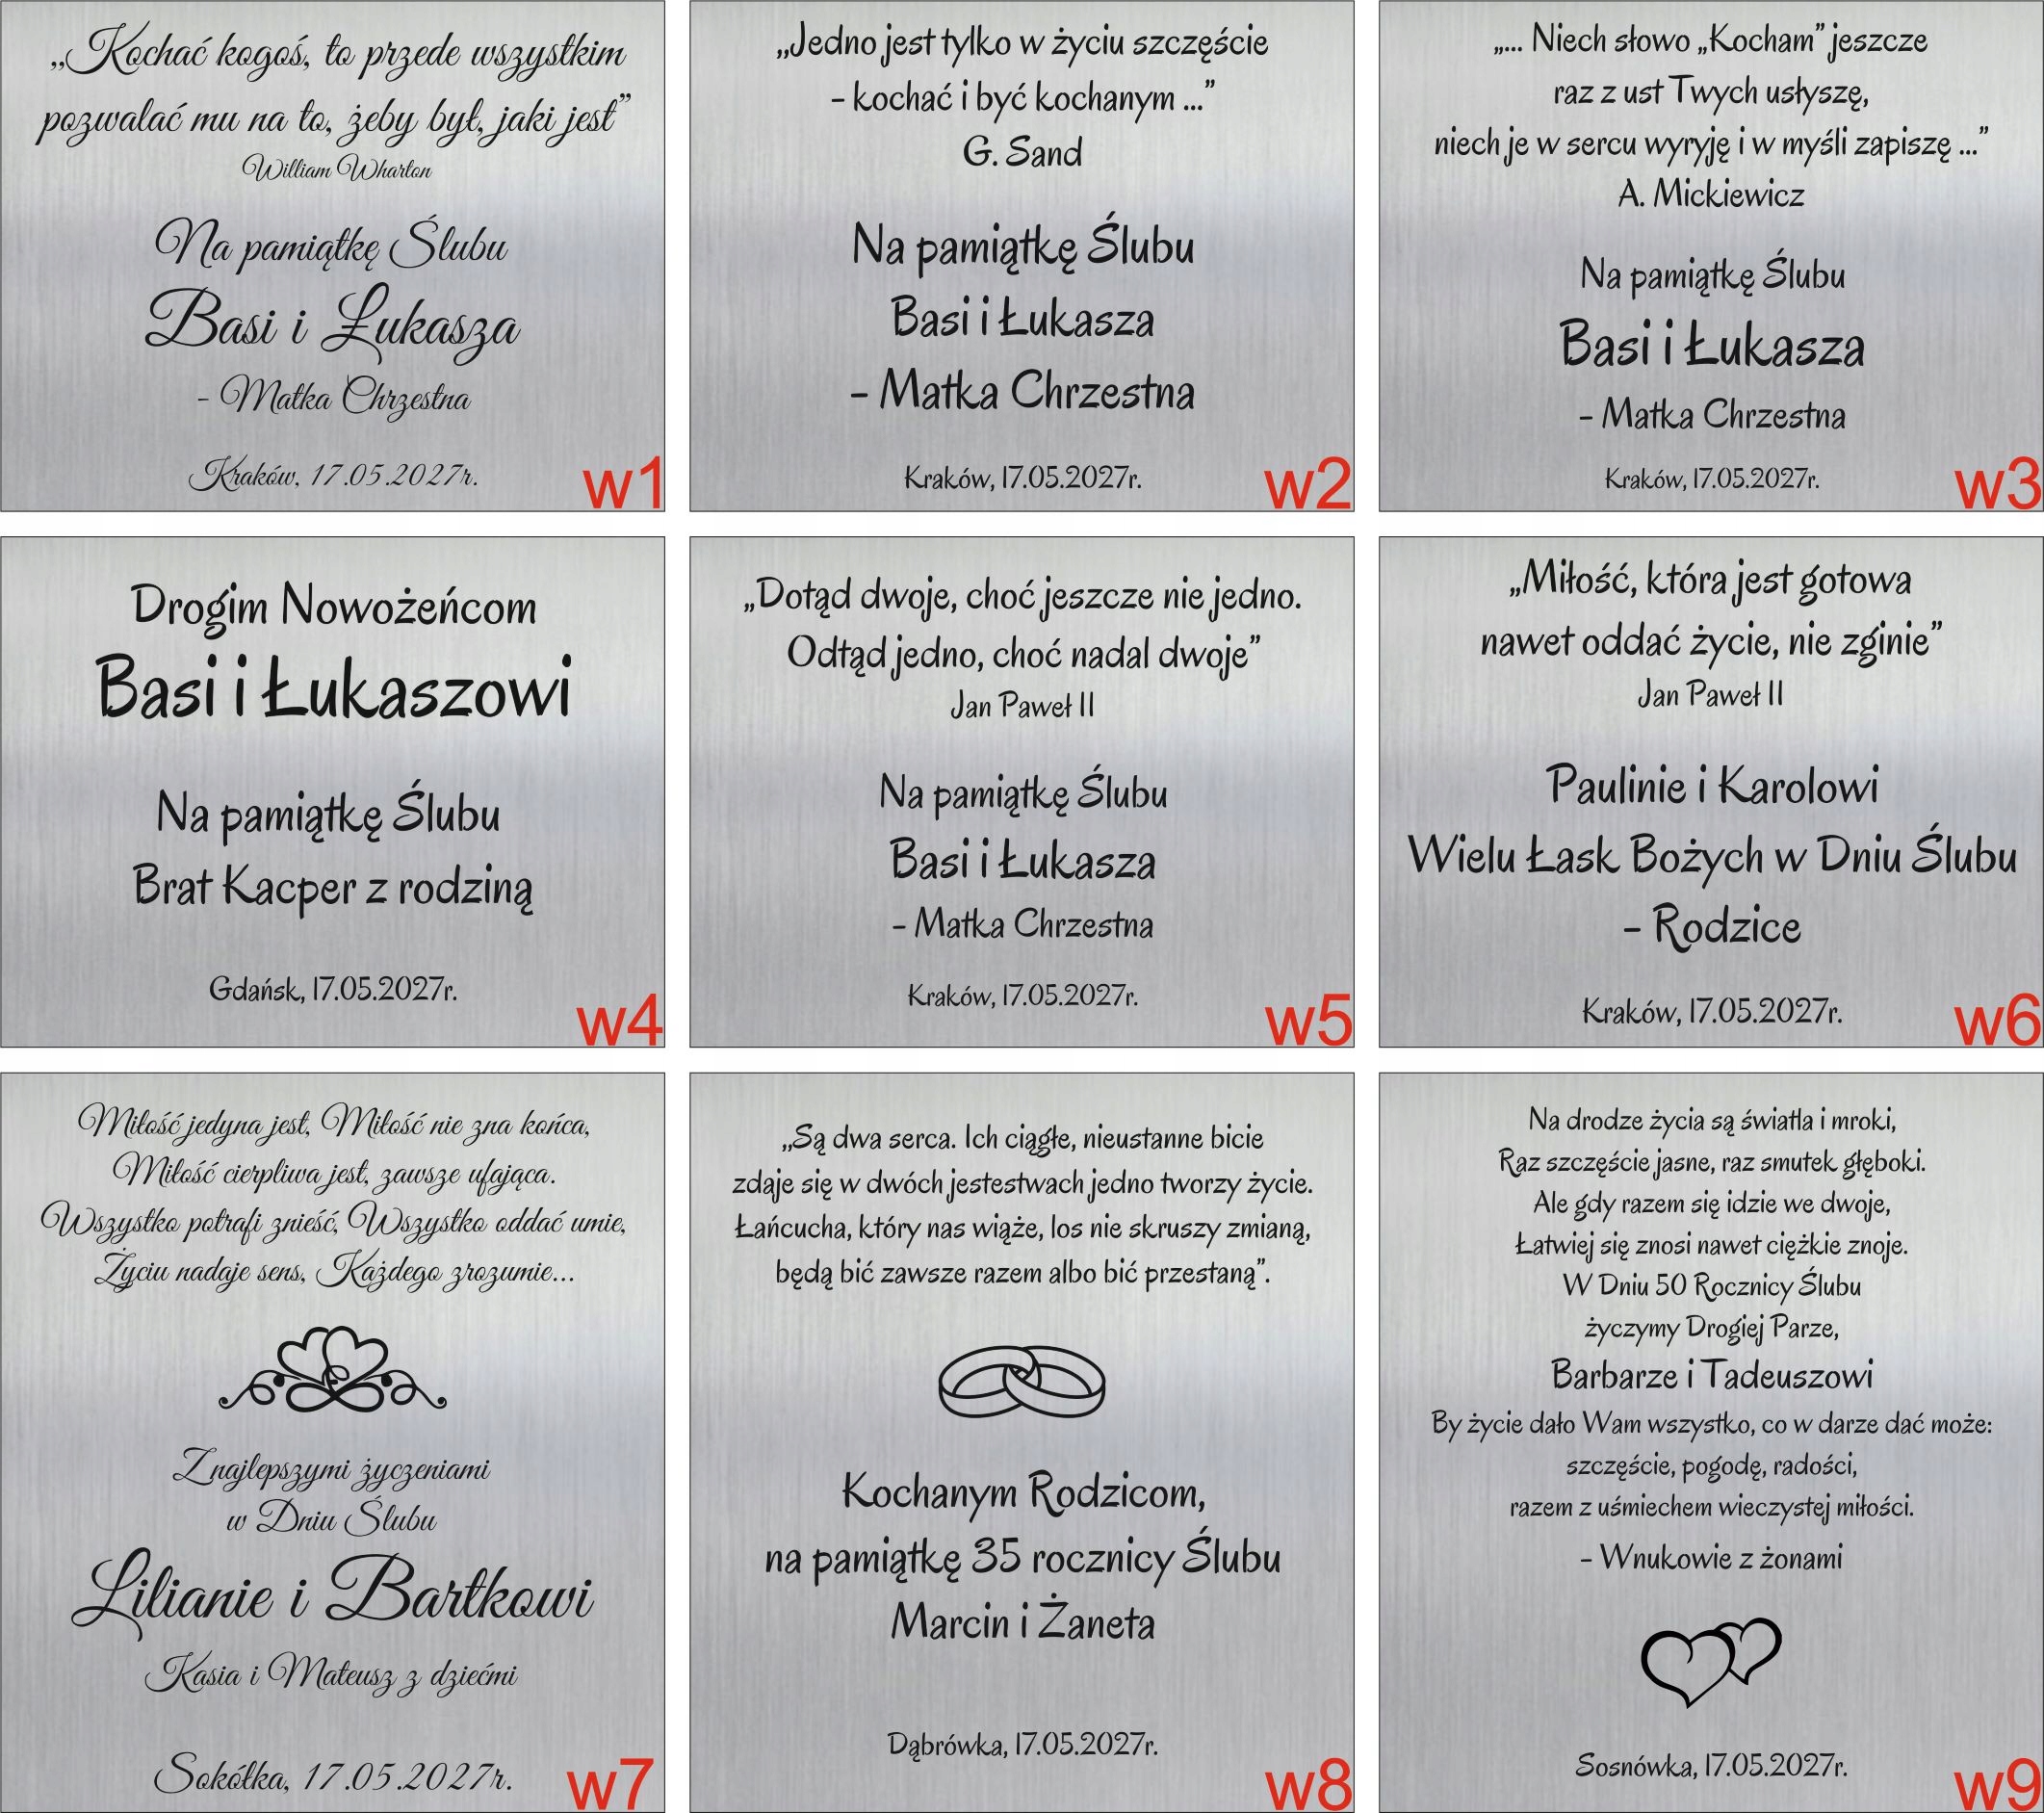 „Kochać kogoś, to przede wszystkim
pozwalać mu na to, żeby był, jaki jest”
William Wharton
Na pamiątkę Ślubu
Basi i Łukasza
- Matka Chrzestna
Kraków, 17.05.2027r.
w1
„Jedno jest tylko w życiu szczęście
- kochać i być kochanym ...”
G. Sand
Na pamiątkę Ślubu
Basi i Łukasza
- Matka Chrzestna
Kraków, 17.05.2027r.
w2
„... Niech słowo „Kocham” jeszcze
raz z ust Twych usłyszę,
niech je w sercu wyryję i w myśli zapiszę ...”
A. Mickiewicz
Na pamiątkę Ślubu
Basi i Łukasza
- Matka Chrzestna
Kraków, 17.05.2027r.
w3
Drogim Nowożeńcom
Basi i Łukaszowi
Na pamiątkę Ślubu
Brat Kacper z rodziną
Gdańsk, 17.05.2027r.
w4
„Dotąd dwoje, choć jeszcze nie jedno.
Odtąd jedno, choć nadal dwoje”
Jan Paweł II
Na pamiątkę Ślubu
Basi i Łukasza
- Matka Chrzestna
Kraków, 17.05.2027r.
w5
„Miłość, która jest gotowa
nawet oddać życie, nie zginie”
Jan Paweł II
Paulinie i Karolowi
Wielu Łask Bożych w Dniu Ślubu
- Rodzice
Kraków, 17.05.2027r.
w6
Miłość jedyna jest, Miłość nie zna końca,
Miłość cierpliwa jest, zawsze ufająca.
Wszystko potrafi znieść, Wszystko oddać umie,
Życiu nadaje sens, Każdego zrozumie...
Z najlepszymi życzeniami
w Dniu Ślubu
Lilianie i Bartkowi
Kasia i Mateusz z dziećmi
Sokółka, 17.05.2027r.
w7
„Są dwa serca. Ich ciągłe, nieustanne bicie
zdaje się w dwóch jestestwach jedno tworzy życie.
Łańcucha, który nas wiąże, los nie skruszy zmianą,
będą bić zawsze razem albo bić przestaną”.
Kochanym Rodzicom,
na pamiątkę 35 rocznicy Ślubu
Marcin i Żaneta
Dąbrówka, 17.05.2027r.
w8
Na drodze życia są światła i mroki,
Raz szczęście jasne, raz smutek głęboki.
Ale gdy razem się idzie we dwoje,
Łatwiej się znosi nawet ciężkie znoje.
W Dniu 50 Rocznicy Ślubu
życzymy Drogiej Parze,
Barbarze i Tadeuszowi
By życie dało Wam wszystko, co w darze dać może:
szczęście, pogodę, radości,
razem z uśmiechem wieczystej miłości.
- Wnukowie z żonami
Sosnówka, 17.05.2027r.
w9